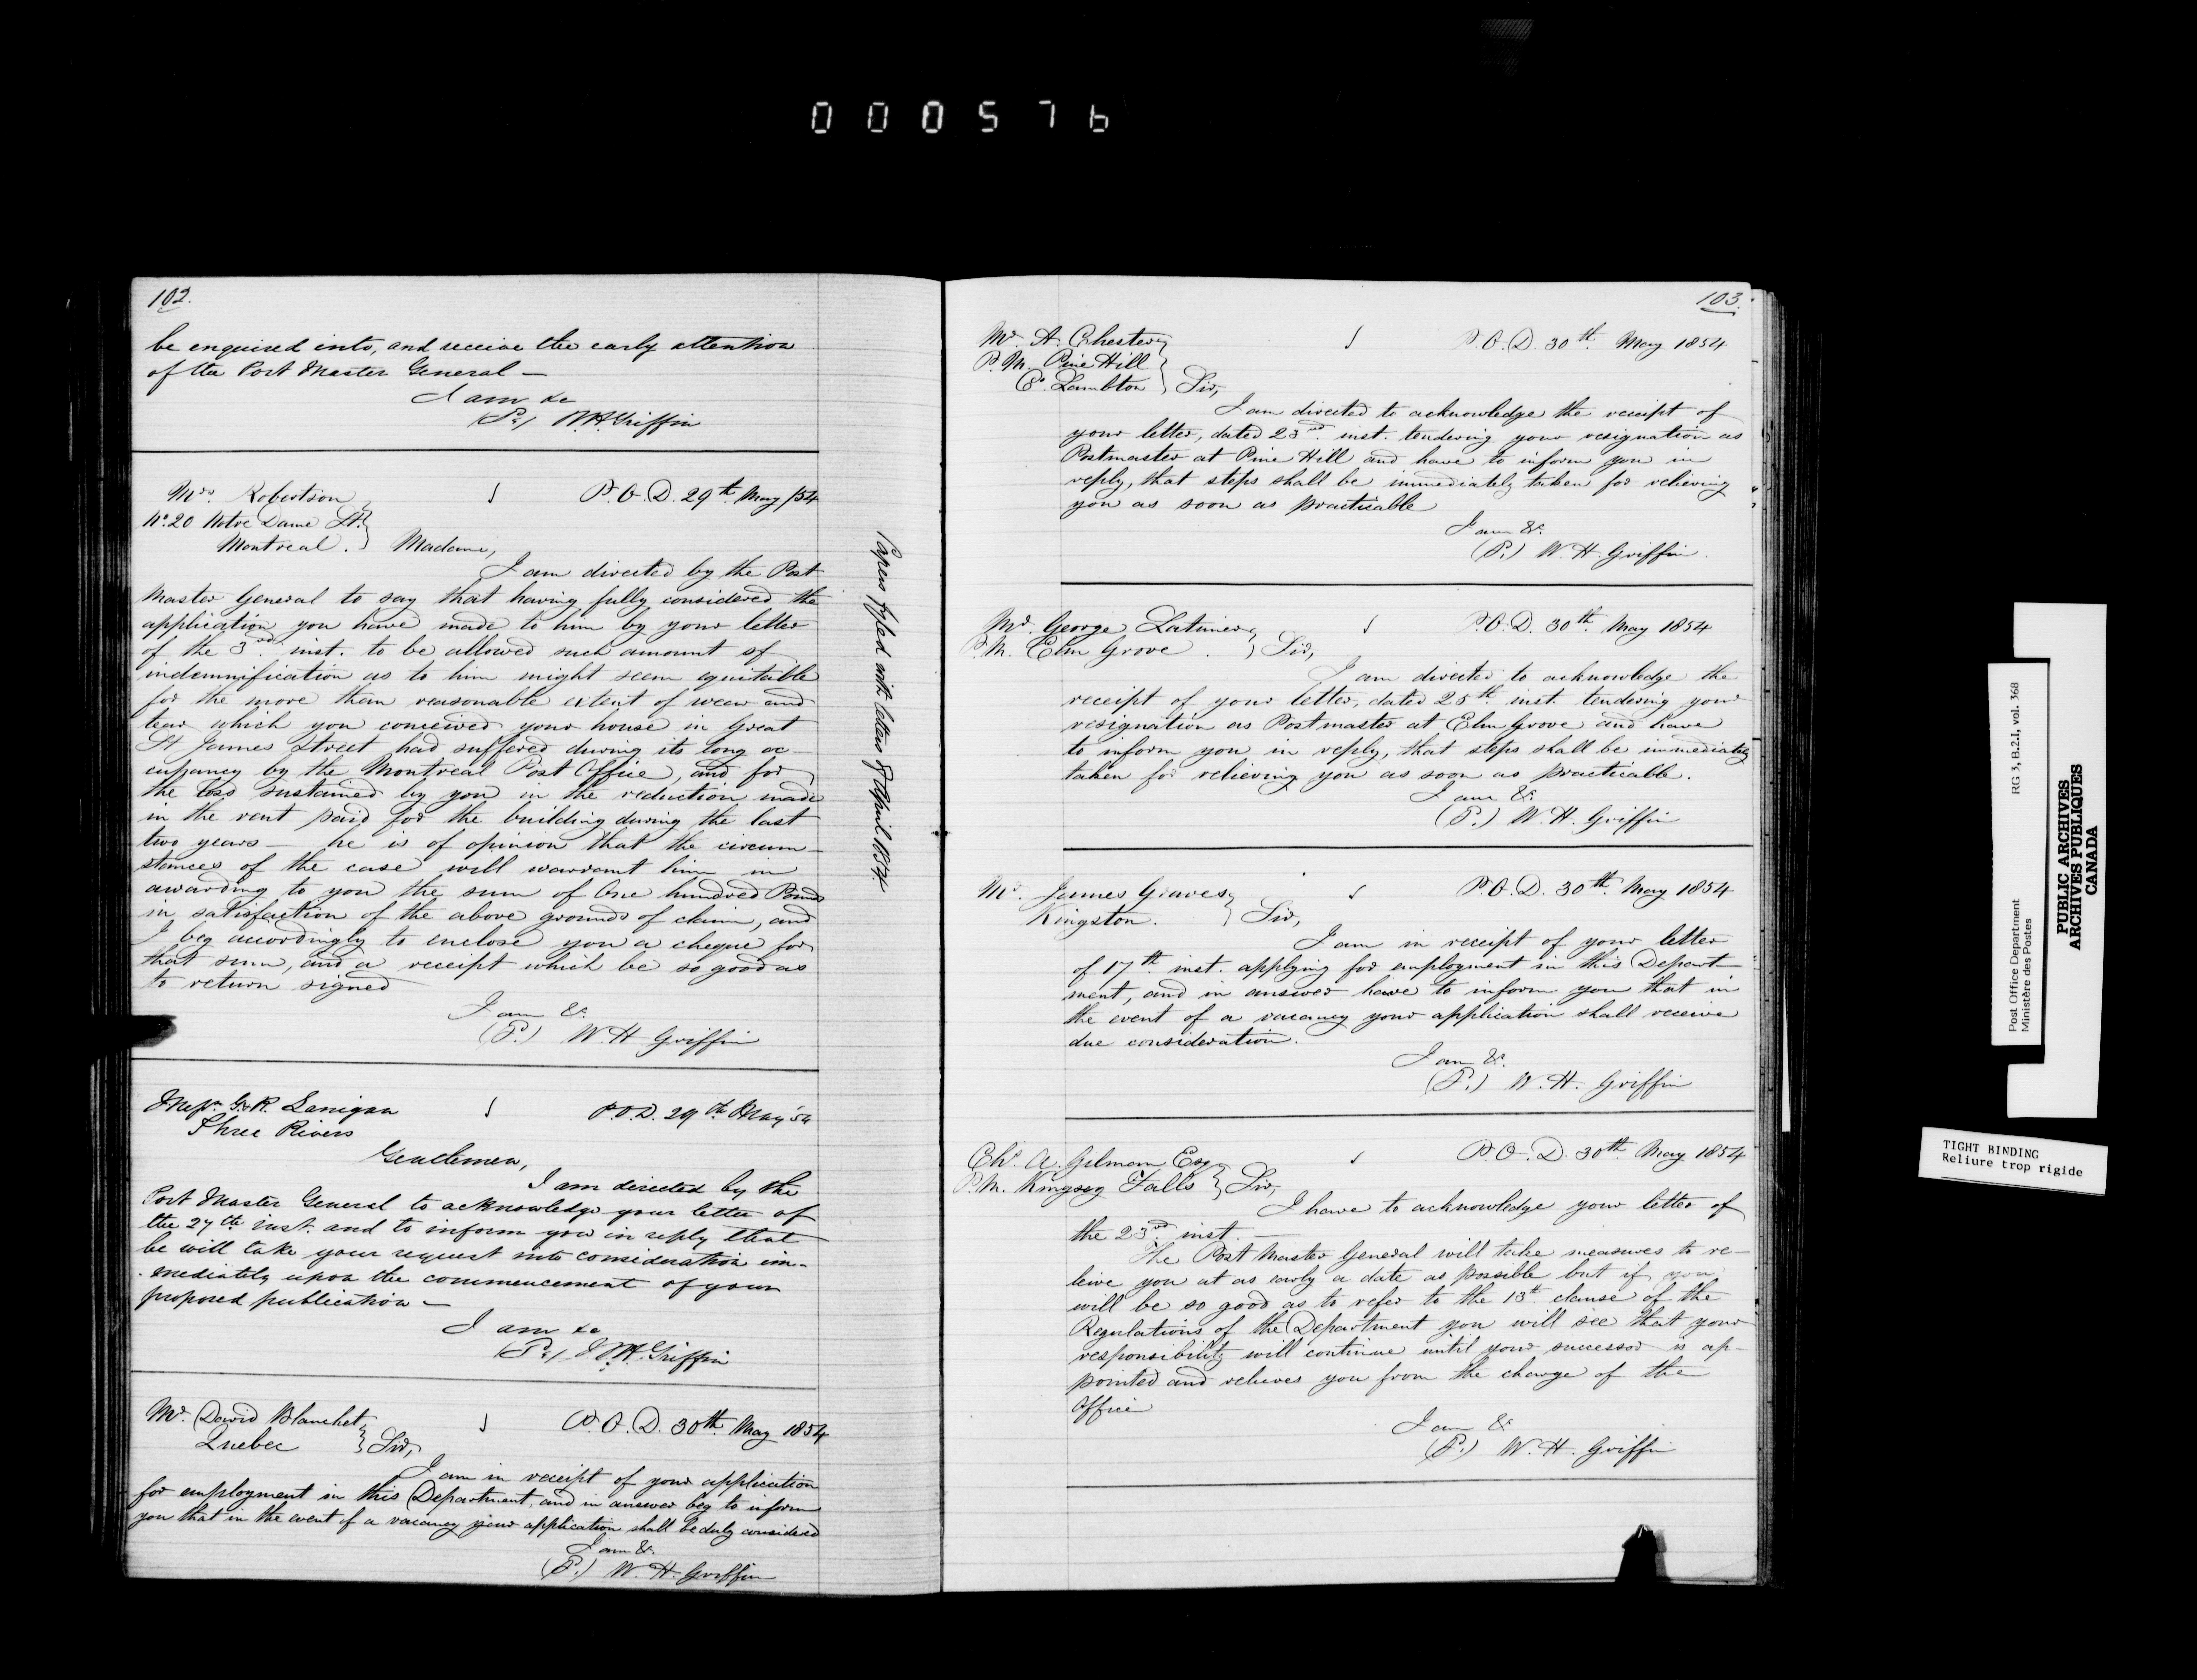 000576
102.
be enquired into, and receive the early attention
of the Post Master General —
I am &c
W.H. Griffin
Mrs. Robertson
No. 20 Notre Dame St.
Montreal.
P.O.D. 29th May /54
Madame,
I am directed by the Post
Master General to say that having fully considered the
application you have made to him by your letter
of the 3rd. inst. to be allowed such amount of
indemnification as to him might seem equitable
for the more than reasonable extent of wear and
tear which you conceived your house in Great
St James Street had suffered during its long oc-
cupancy by the Montreal Post Office, and for
the loss sustained by you in the reduction made
in the rent paid for the building during the last
two years — he is of opinion that the circum-
stances of the case will warrant him in
awarding to you the sum of One hundred Pounds
in satisfaction of the above grounds of claim, and
I beg accordingly to enclose you a cheque for
that sum, and a receipt which be so good as
to return signed
I am &c.
W. H Griffin
Papers fyled with letters of April 1854
G & R. Lanigan
Three Rivers
P.O.D. 29th May '54
Gentlemen,
I am directed by the
Post Master General to acknowledge your letter of
the 27th inst. and to inform you in reply that
he will take your request into consideration im-
mediately upon the commencement of your
proposed publication —
I am &c
W.H. Griffin
Mr. David Blanchet
Quebec
P.O.D. 30th May 1854
Sir,
I am in receipt of your application
for employment in this Department, and in answer beg to inform
you that in the event of a vacancy your application shall be duly considered
I am &c.
W. H. Griffin
103.
Mr. A. Chester
P.M. Pine Hill
Co. Lambton
P.O.D. 30th. May 1854
Sir,
I am directed to acknowledge the receipt of
your letter, dated 23rd. inst. tendering your resignation as
Postmaster at Pine Hill and have to inform you in
reply, that steps shall be immediately taken for relieving
you as soon as practicable
I am &c.
W. H. Griffin.
Mr. George Latimer
P.M. Elm Grove.
P.O.D. 30th. May 1854
Sir,
I am directed to acknowledge the
receipt of your letter, dated 25th. inst. tendering your
resignation as Postmaster at Elm Grove and have
to inform you in reply, that steps shall be immediately
taken for relieving you as soon as practicable.
I am &c.
W. H. Griffin
Mr. James Graves
Kingston.
P.O.D. 30th. May 1854
Sir,
I am in receipt of your letter
of 17th. inst. applying for employment in this Depart-
ment, and in answer have to inform you that in
the event of a vacancy your application shall receive
due consideration.
I am &c.
W. H. Griffin
Chs. A. Gilman Esq
P.M. Kingsey Falls
P.O.D. 30th. May 1854
Sir,
I have to acknowledge your letter of
the 23rd. inst. —
The Post Master General will take measures to re-
leive you at as early a date as possible but if you
will be so good as to refer to the 13th. clause of the
Regulations of the Department you will see that your
responsibility will continue until your successor is ap-
pointed and relieves you from the charge of the
Office
I am &c
W. H. Griffin
Post Office Department
Ministère des Postes
RG 3, B.2.I, vol. 368
PUBLIC ARCHIVES
ARCHIVES PUBLIQUES
CANADA
TIGHT BINDING
Reliure trop rigide